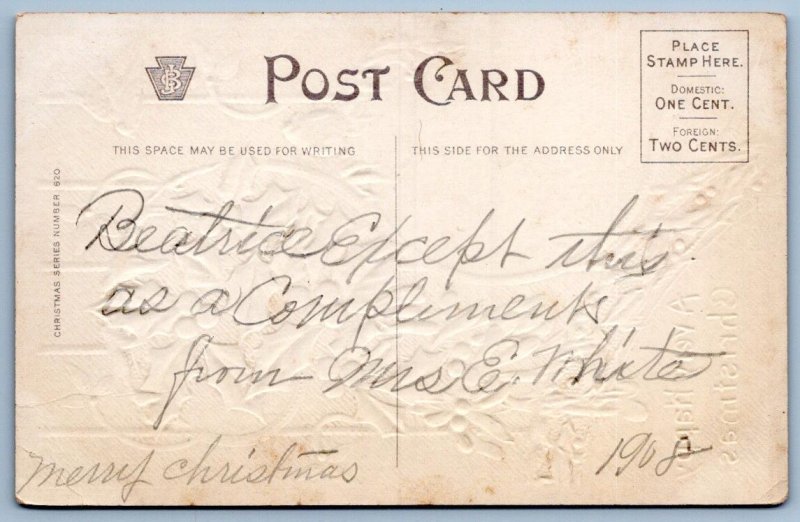 POST CARD
PLACE
STAMP HERE.
DOMESTIC:
ONE CENT.
FOREIGN:
TWO CENTS.
THIS SPACE MAY BE USED FOR WRITING
THIS SIDE FOR THE ADDRESS ONLY
CHRISTMAS SERIES NUMBER 620
Beatrice Except this
as a Compliments
from Mrs E. White
merry christmas
1908